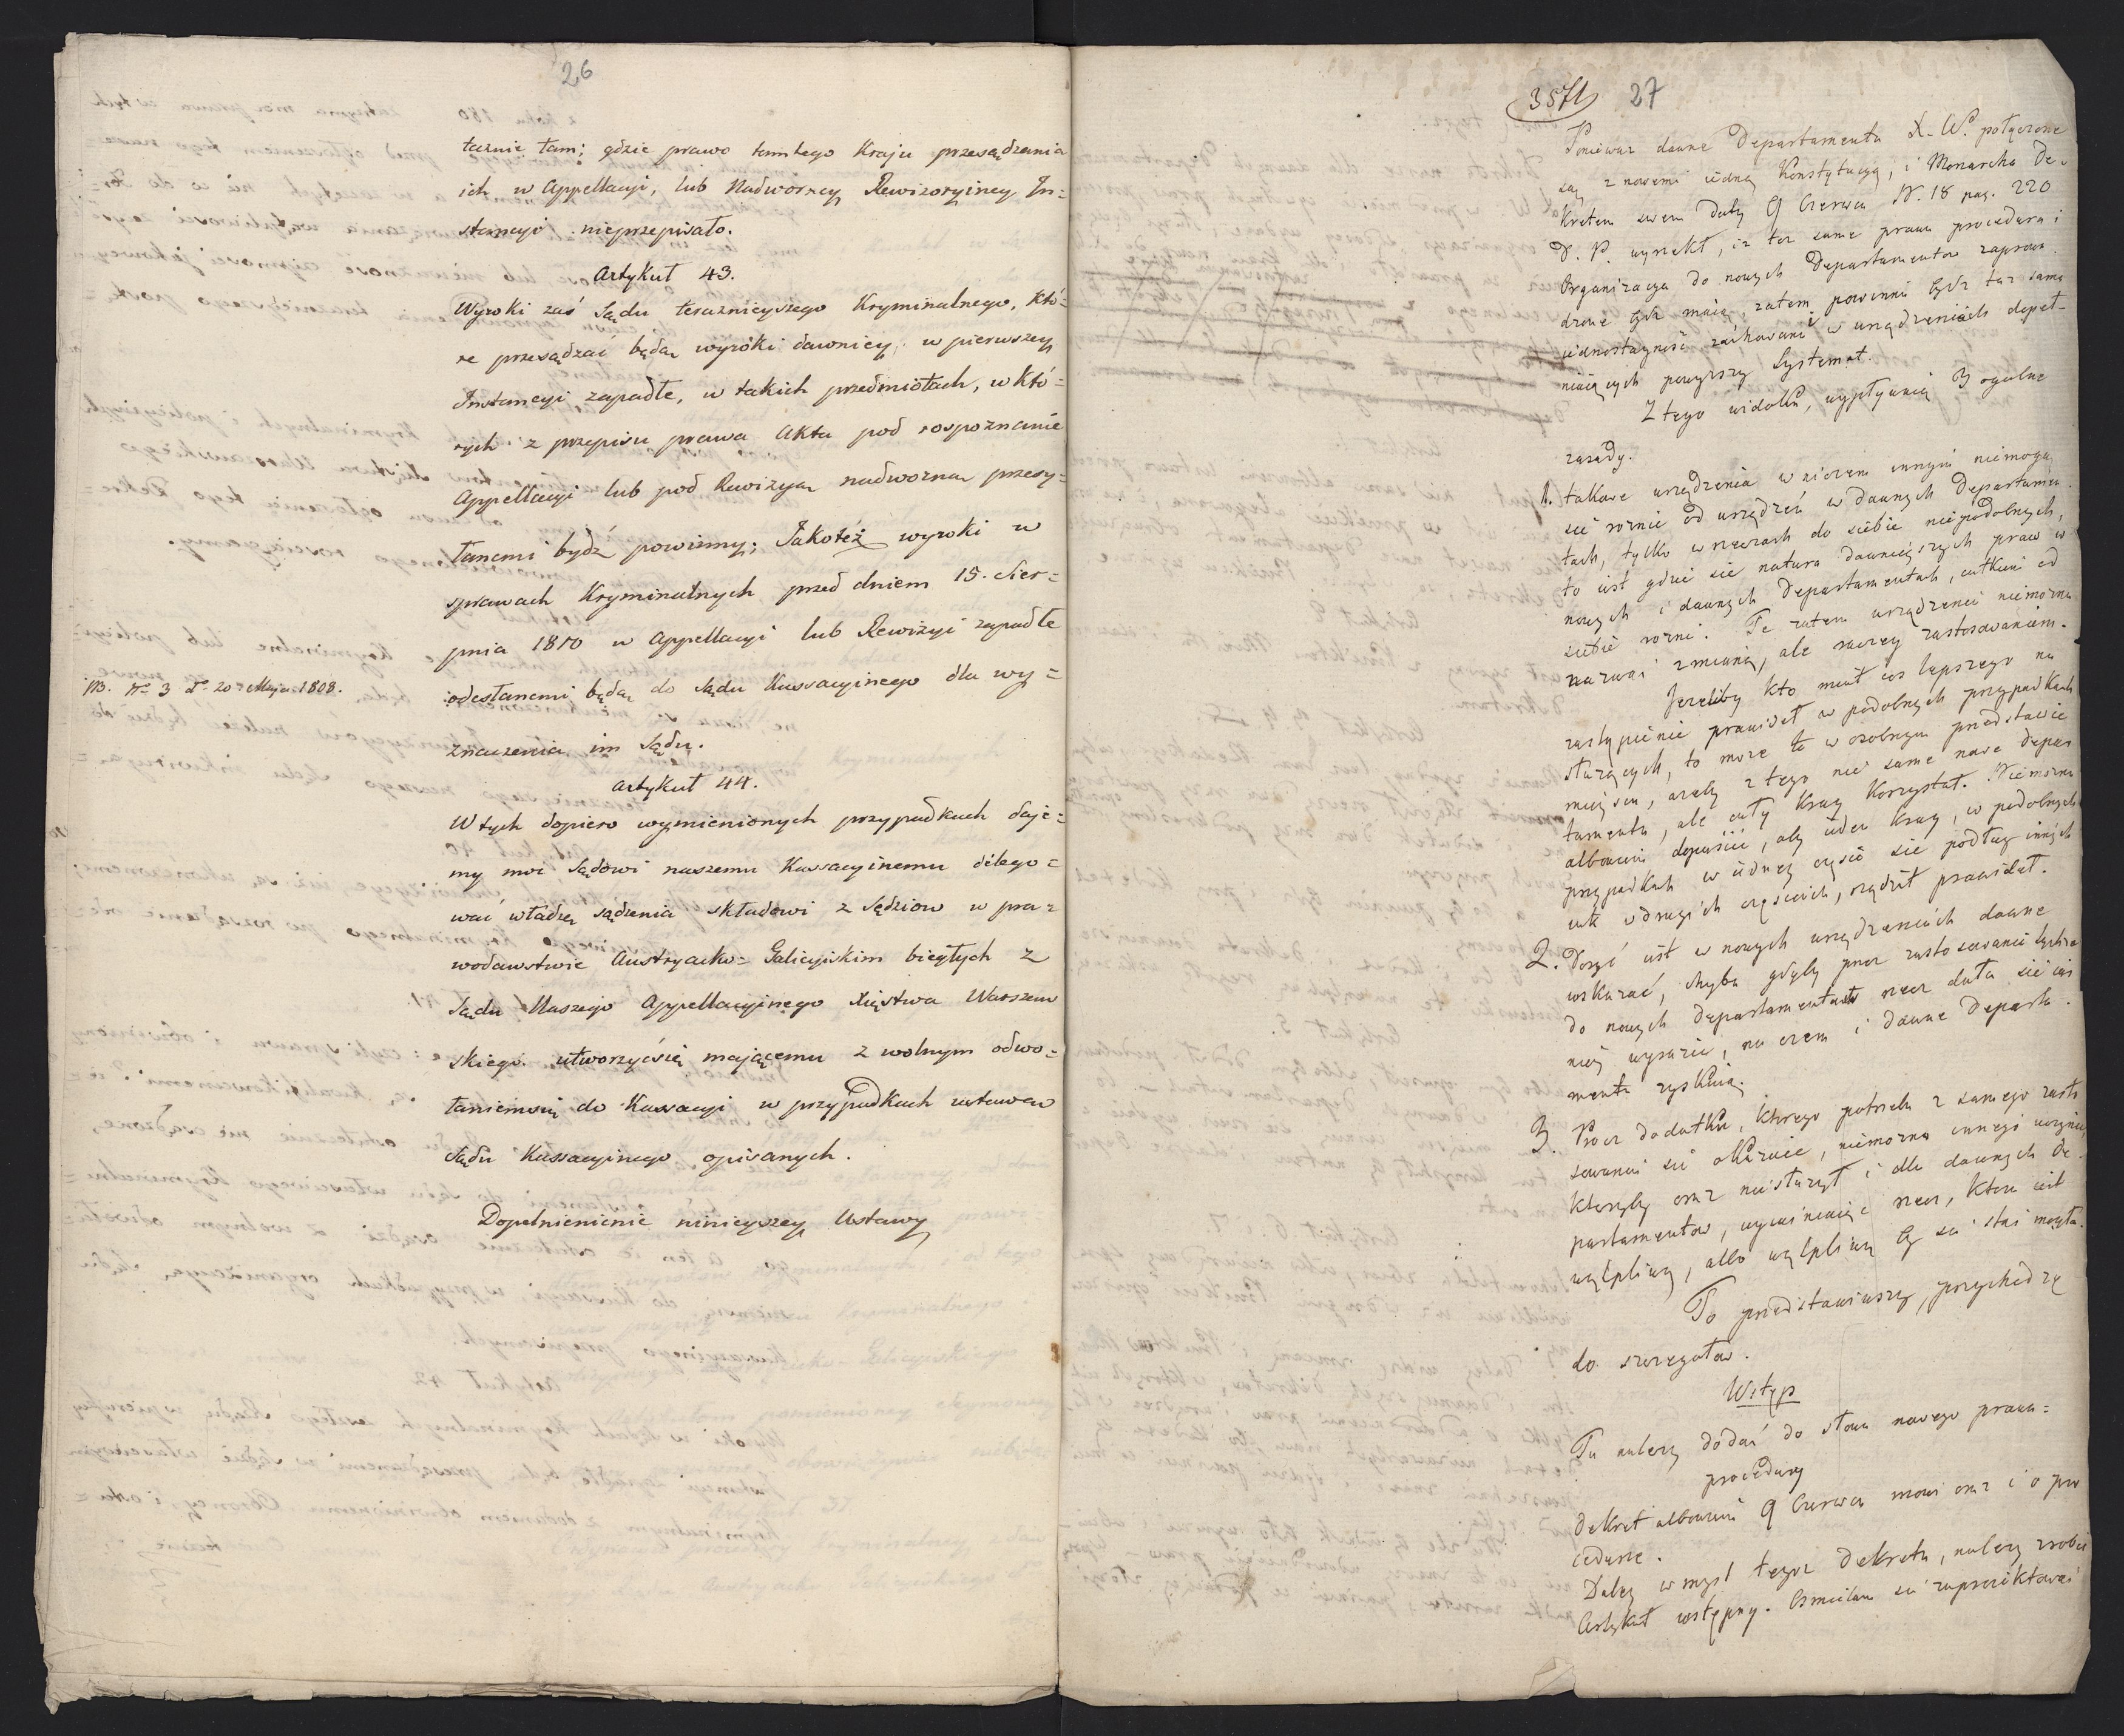 26
tecznie tam; gdzie prawo tamtego Kraju przesądzenia
ich w Appellacyi, lub Nadworney Rewizoryiney In=
stancyi nieprzepisało.
Artykuł 43.
Wyroki zaś Sądu teraznieyszego Kryminalnego, któ=
re przesądzać będą wyroki dawniey w pierwszey
Instancyi zapadłe, w takich przedmiotach, w któ=
rych z przepisu prawa Akta pod rospoznanie
Appellacyi lub pod Rewizyą nadworną przesy=
łanemi bydź powinny; Jakotéż wyroki w
sprawach Kryminalnych przed dniem 15. Sier=
pnia 1810 w Appellacyi lub Rewizyi zapadłe
NB. N= 3 d= 20 Maja 1808.
odesłanemi będą do Sądu Kassacyinego dla wy=
znaczenia im Sądu.
Artykuł 44.
W tych dopiero wymienionych przypadkach daje=
my moc Sądowi naszemu Kassacyinemu délego=
wać władzę sądzenia składowi z Sędziow w pra=
wodawstwie Austryacko=Galicyiskim biegłych z
Sądu Naszego Appellacyjnego Xięstwa Warszaw
skiego utworzyćsię mającemu z wolnym odwo=
łaniemsię do Kassacyi w przypadkach ustawą
Sądu Kassacyinego opisanych.
Dopełnienienie ninieyszey Ustawy
3571 27
Ponieważ dawne Departamenta X. W. połączone
są z nowemi iedną Konstytucyą, i Monarcha De-
kretem swem Daty 9 Czerwca N. 18 pag. 220
D. P. wyrzekł, iż też same prawa procedura i
Organizacya do nowych Departamentow zaprowa-
dzone być maią, zatem powinna być taż sama
iednostayność zachowana i w urządzeniach depeł-
niaiących powyższy Systemat.
Z tego widoku, wypływaią 3 ogulne
zasady.
1. takowe urządzenia w niczem innym niemogą
sie roznić od urządzeń w dawnych Departamen-
tach, tylko w rzeczach do siebie niepodobnych,
to iest gdzie sie natura dawnieyszych praw w
nowych i dawnych Departamentach, całkiem od
siebie rozni. Te zatem urządzenia niemożna
nazwać zmianą, ale raczey zastosowaniem.
Jezeliby kto miał cos lepszego na
zastąpienie prawideł w podobnych przypadkach
służących, to może te w osobnym przedstawić
mieyscu, ażeby z tego nie same nowe Depar
tamenta, ale cały Kray korzystał. Niemożna
albowiem dopuścić, aby ieden Kray, w podobnych
przypadkach w iedney częsci sie podług innych
iak w drugich częsciach, rządził prawideł.
2. Dosyć iest w nowych urządzeniach dawne
wskazać, chyba gdyby przez zastosowanie tychże
do nowych Departamentach rzecz dała sie ias
niey wyrazić, na czem i dawne Departa-
menta zyskaią.
3. Procz dodatku, którego potrzeba z samego zasto
sowania się okaże, niemożna innego uczynić,
ktoryby oraz niesłużył i dla dawnych De-
partamentow, wyiaśniaiąc rzecz, ktora iest
wątpliwą, albo wątpliwą by sie stać mogła.
To przedstawiwszy, przychodzę
do szczegułow.
Wstęp
Tu należy dodać do słowa nowego prawa=
procedury
Dekret albowiem 9 Czerwca mowi oraz i o pro
cedurze.
Daley w mysl tegoż Dekretu, należy zrobić
Artykuł wstępny. Osmielam sie zaproiektować